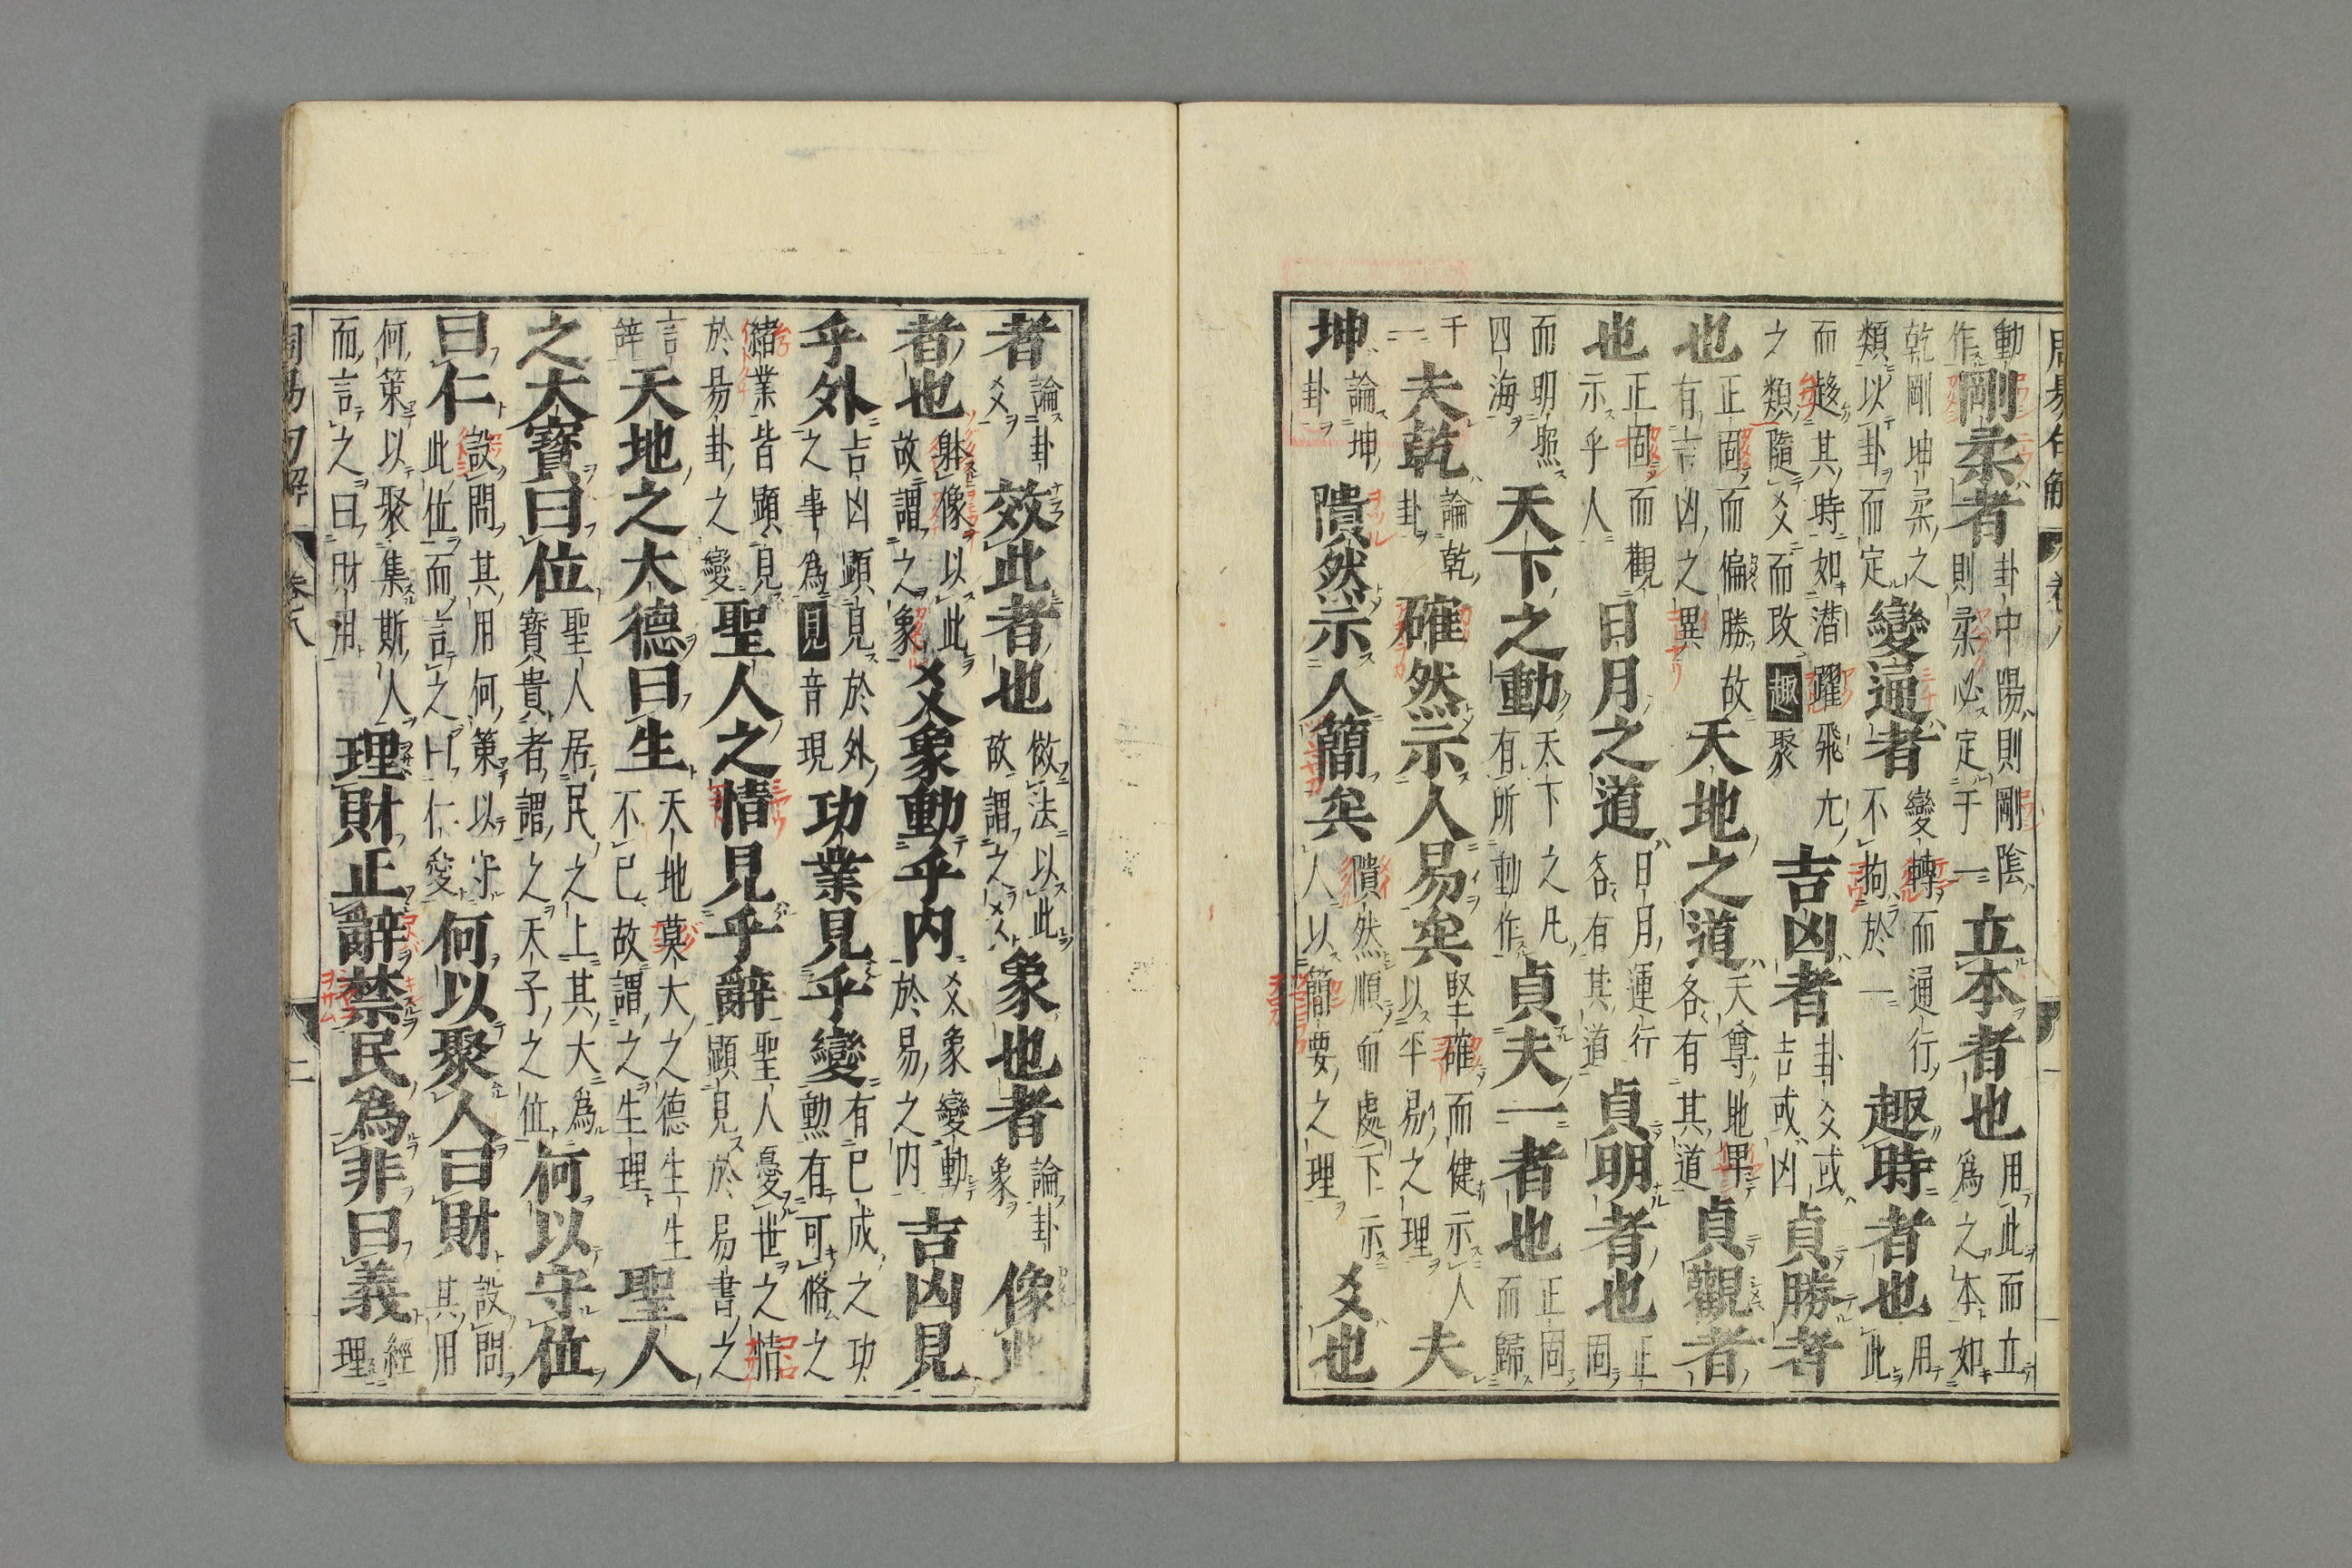 周易句解 卷八 一
動作剛柔者卦中陽則剛陰則柔必定于一立本者也用此而立為之本如
乾剛坤柔之類以卦而定變通者變轉而通行不拘於一趣時者也用此
而趍其時如潛躍飛亢之類隨爻而改趣聚吉凶者卦爻或吉或凶貞勝者
也正固而偏勝故有吉凶之異天地之道天尊地卑各有其道貞觀者
也正固而觀示乎人日月之道日月運行各有其道貞明者也正固
而明照四海天下之動天下之凡有所動作貞夫一者也正固而歸
千一夫乾論乾卦確然示人易矣堅確而健示人以平易之理夫
坤論坤卦隤然示人簡矣隤然順而處下示人以簡要之理爻也
者論卦爻效此者也倣法以此故謂之爻象也者論卦象像此
者也躰像以此故謂之象爻象動乎内爻象變動於易之内吉凶見
乎外吉凶顯見於外之事為見音現功業見乎變有已成之功勲有可脩之
緒業皆顯見於易卦之變聖人之情見乎辭聖人憂世之情顯見於易書之
言辝天地之大德曰生天地莫大之德生生不已故謂之生理聖人
之大寳曰位聖人居民之上其大為寳貴者謂之天子之位何以守位
曰仁設問其用何策以守此位而言之曰仁愛何以聚人曰財設問其用
何策以聚集斯人而言之曰財用理財正辭禁民為非曰義經理
周易句解 卷八 二